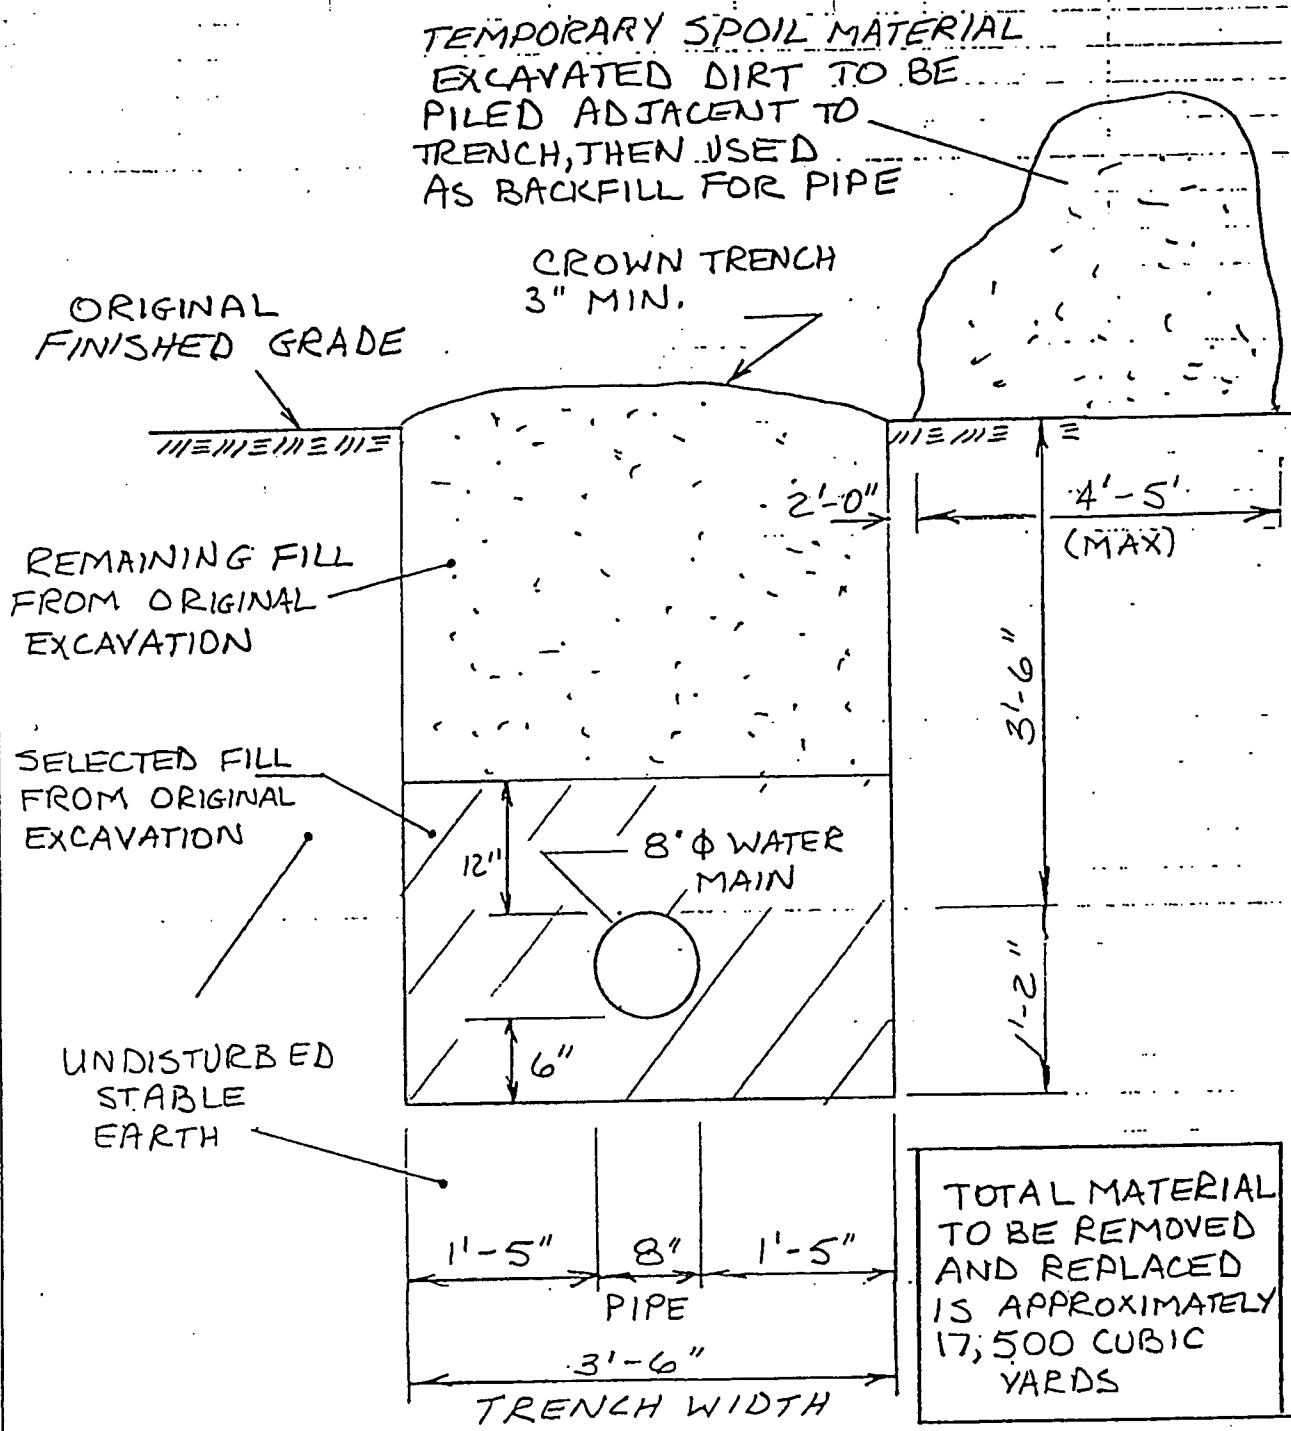 TEMPORARY SPOIL MATERIAL
EXCAVATED DIRT TO BE
PILED ADJACENT TO
TRENCH, THEN USED
AS BACKFILL FOR PIPE
CROWN TRENCH
3" MIN.
ORIGINAL
FINISHED GRADE
2'-0"
4'-5'
(MAX)
REMAINING FILL
FROM ORIGINAL
EXCAVATION
3'-6"
SELECTED FILL
FROM ORIGINAL
EXCAVATION
12"
8"Φ WATER
MAIN
1'-2"
6"
UNDISTURBED
STABLE
EARTH
1'-5" 8" 1'-5"
PIPE
3'-6"
TRENCH WIDTH
TOTAL MATERIAL
TO BE REMOVED
AND REPLACED
IS APPROXIMATELY
17,500 CUBIC
YARDS